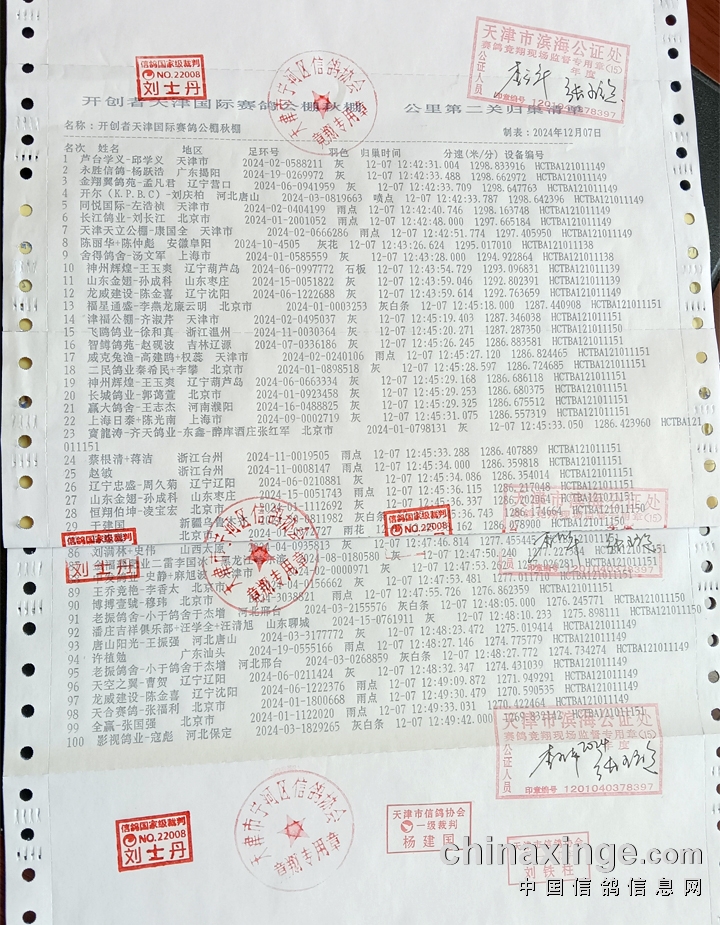 信鸽国家级裁判
NO.22008
刘士丹
天津市宁河区信鸽协会
竞翔专用章
天津市滨海公证处
赛鸽竞翔现场监督专用章(15)
公证人员
年度
印章编号 1201040378397
开创者天津国际赛鸽公棚秋棚 公里第二关归巢清单
名称：开创者天津国际赛鸽公棚秋棚 制表：2024年12月07日
名次 姓名 地区 足环号 羽色 归巢时间 分速(米/分) 设备编号
1 芦台学义-邱学义 天津市 2024-02-0588211 灰 12-07 12:42:31.004 1298.833916 HCTBA121011149
2 永胜信鸽-杨跃浩 广东揭阳 2024-19-0269972 灰 12-07 12:42:33.488 1298.662972 HCTBA121011149
3 金翔翼鸽苑-孟凡君 辽宁营口 2024-06-0941959 灰 12-07 12:42:33.709 1298.647763 HCTBA121011149
4 开尔(K.P.B.C)-刘庆柏 河北唐山 2024-03-0819663 喷点 12-07 12:42:33.787 1298.642396 HCTBA121011149
5 同悦国际-左浩桢 天津市 2024-02-0404199 雨点 12-07 12:42:40.746 1298.163748 HCTBA121011149
6 长江鸽业-刘长江 北京市 2024-01-2001052 雨点 12-07 12:42:48.000 1297.665165 HCTBA121011149
7 天津天立公棚-康国全 天津市 2024-02-0666286 雨点 12-07 12:42:51.774 1297.405950 HCTBA121011149
8 陈丽华+陈仲彪 安徽阜阳 2024-10-4505 灰花 12-07 12:43:26.624 1295.017010 HCTBA121011138
9 舍得鸽舍-汤文军 上海市 2024-01-0585559 灰 12-07 12:43:28.000 1294.922864 HCTBA121011138
10 神州辉煌-王玉爽 辽宁葫芦岛 2024-06-0997772 石板 12-07 12:43:54.729 1293.096831 HCTBA121011139
11 山东金翅-孙成科 山东枣庄 2024-15-0051822 灰 12-07 12:43:59.046 1292.802391 HCTBA121011139
12 龙威建设-陈金喜 辽宁沈阳 2024-06-1222688 灰 12-07 12:43:59.614 1292.763659 HCTBA121011149
13 福星通盛-李燕龙廉云明 北京市 2024-01-0003253 灰白条 12-07 12:45:18.000 1287.440908 HCTBA121011151
14 津福公棚-齐淑芹 天津市 2024-02-0495037 灰 12-07 12:45:19.403 1287.346038 HCTBA121011151
15 飞鸥鸽业-徐和真 浙江温州 2024-11-0030364 灰 12-07 12:45:20.271 1287.287350 HCTBA121011150
16 智鳟鸽苑-赵砚波 吉林辽源 2024-07-0336186 灰 12-07 12:45:26.245 1286.883581 HCTBA121011151
17 威克兔渔-高建鹍+权蕊 天津市 2024-02-0240106 雨点 12-07 12:45:27.120 1286.824465 HCTBA121011151
18 二民鸽业秦希民+李攀 北京市 2024-01-0898518 灰 12-07 12:45:28.597 1286.724685 HCTBA121011151
19 神州辉煌-王玉爽 辽宁葫芦岛 2024-06-0663334 灰 12-07 12:45:29.168 1286.686118 HCTBA121011151
20 长城鸽业-郭蔼萱 北京市 2024-01-0923458 灰 12-07 12:45:29.253 1286.680375 HCTBA121011151
21 赢大鸽舍-王志杰 河南濮阳 2024-16-0488825 灰 12-07 12:45:29.325 1286.675512 HCTBA121011151
22 上海日泰-陈光南 上海市 2024-09-0002719 灰 12-07 12:45:31.075 1286.557319 HCTBA121011151
23 寳龍涛-齐天鸽业-东鑫-醉库酒庄张红军 北京市 2024-01-0798131 灰 12-07 12:45:33.050 1286.423960 HCTBA121
011151
24 蔡根清+蒋洁 浙江台州 2024-11-0019505 雨点 12-07 12:45:33.288 1286.407889 HCTBA121011151
25 赵敏 浙江台州 2024-11-0008147 雨点 12-07 12:45:34.000 1286.359818 HCTBA121011151
26 辽宁忠盛-周久菊 辽宁辽阳 2024-06-0210881 灰 12-07 12:45:34.086 1286.354011 HCTBA121011151
27 山东金翅-孙成科 山东枣庄 2024-15-0051743 雨点 12-07 12:45:36.115 1286.217048
28 恒翔伯坤-凌宝宏 北京市 12-07 12:45:36.337
29 于建国 新疆乌鲁 灰白条
信鸽国家级裁判
NO.22008
信鸽国家级裁判
刘士丹
天津市宁河区信鸽协会
竞翔专用章
86 刘满林-史伟 山西太原
89 王乔竞艳-李香太 北京市
90 博搏壹號-穆玮 北京市 12-07 12:47:55.726 1276.862369 HCTBA121011151
91 老振鸽舍-小于鸽舍于杰增 河北邢台 2024-03-2155576 灰白条 12-07 12:48:05.000 1276.245771 HCTBA121011150
92 潘庄吉祥俱乐部+汪学全+汪清旭 山东聊城 2024-15-0761911 灰 12-07 12:48:10.235 1275.898111 HCTBA121011150
93 唐山阳光-王振强 河北唐山 2024-03-3177772 灰 12-07 12:48:23.472 1275.019414 HCTBA121011149
94 许植勉 广东汕头 2024-19-0555166 雨点 12-07 12:48:27.146 1274.775779 HCTBA121011149
95 老振鸽舍-小于鸽舍于杰增 河北邢台 2024-03-0268859 灰白条 12-07 12:48:27.772 1274.734274 HCTBA121011149
96 天空之翼-曹贺 辽宁辽阳 2024-06-0211424 灰 12-07 12:48:32.347 1274.431039 HCTBA121011149
97 龙威建设-陈金喜 辽宁沈阳 2024-06-1222376 雨点 12-07 12:49:09.872 1271.949291 HCTBA121011149
98 天合赛鸽-张福利 北京市 2024-01-1800668 雨点 12-07 12:49:30.479 1270.590535 HCTBA121011149
99 全赢-张国强 北京市 2024-01-1122020 雨点 12-07 12:49:33.031 1270.422464 HCTBA121011149
100 影视鸽业-寇彪 河北保定 2024-03-1829265 灰白条 12-07 12:49:42.000
天津市滨海公证处
赛鸽竞翔现场监督专用章(15)
公证人员
2024年度
印章编号 1201040378397
信鸽国家级裁判
NO.22008
刘士丹
天津市宁河区信鸽协会
竞翔专用章
天津市信鸽协会
一级裁判
杨建国
刘铁柱
chinaxinge.com
中国信鸽信息网